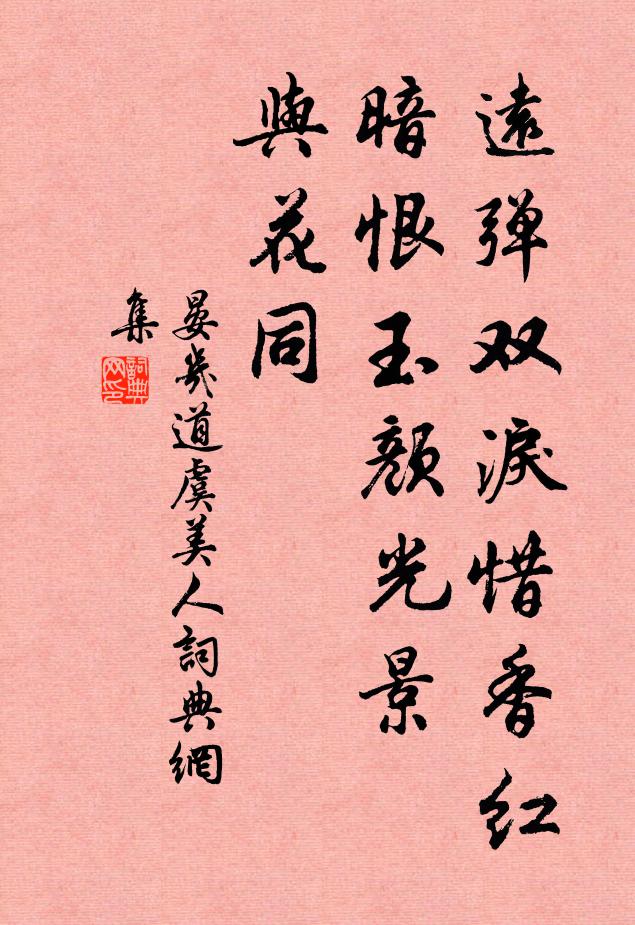 遠弹双淚惜香红
暗恨玉顏光景
與花同
晏幾道虞美人詞典網
集
詞典网印